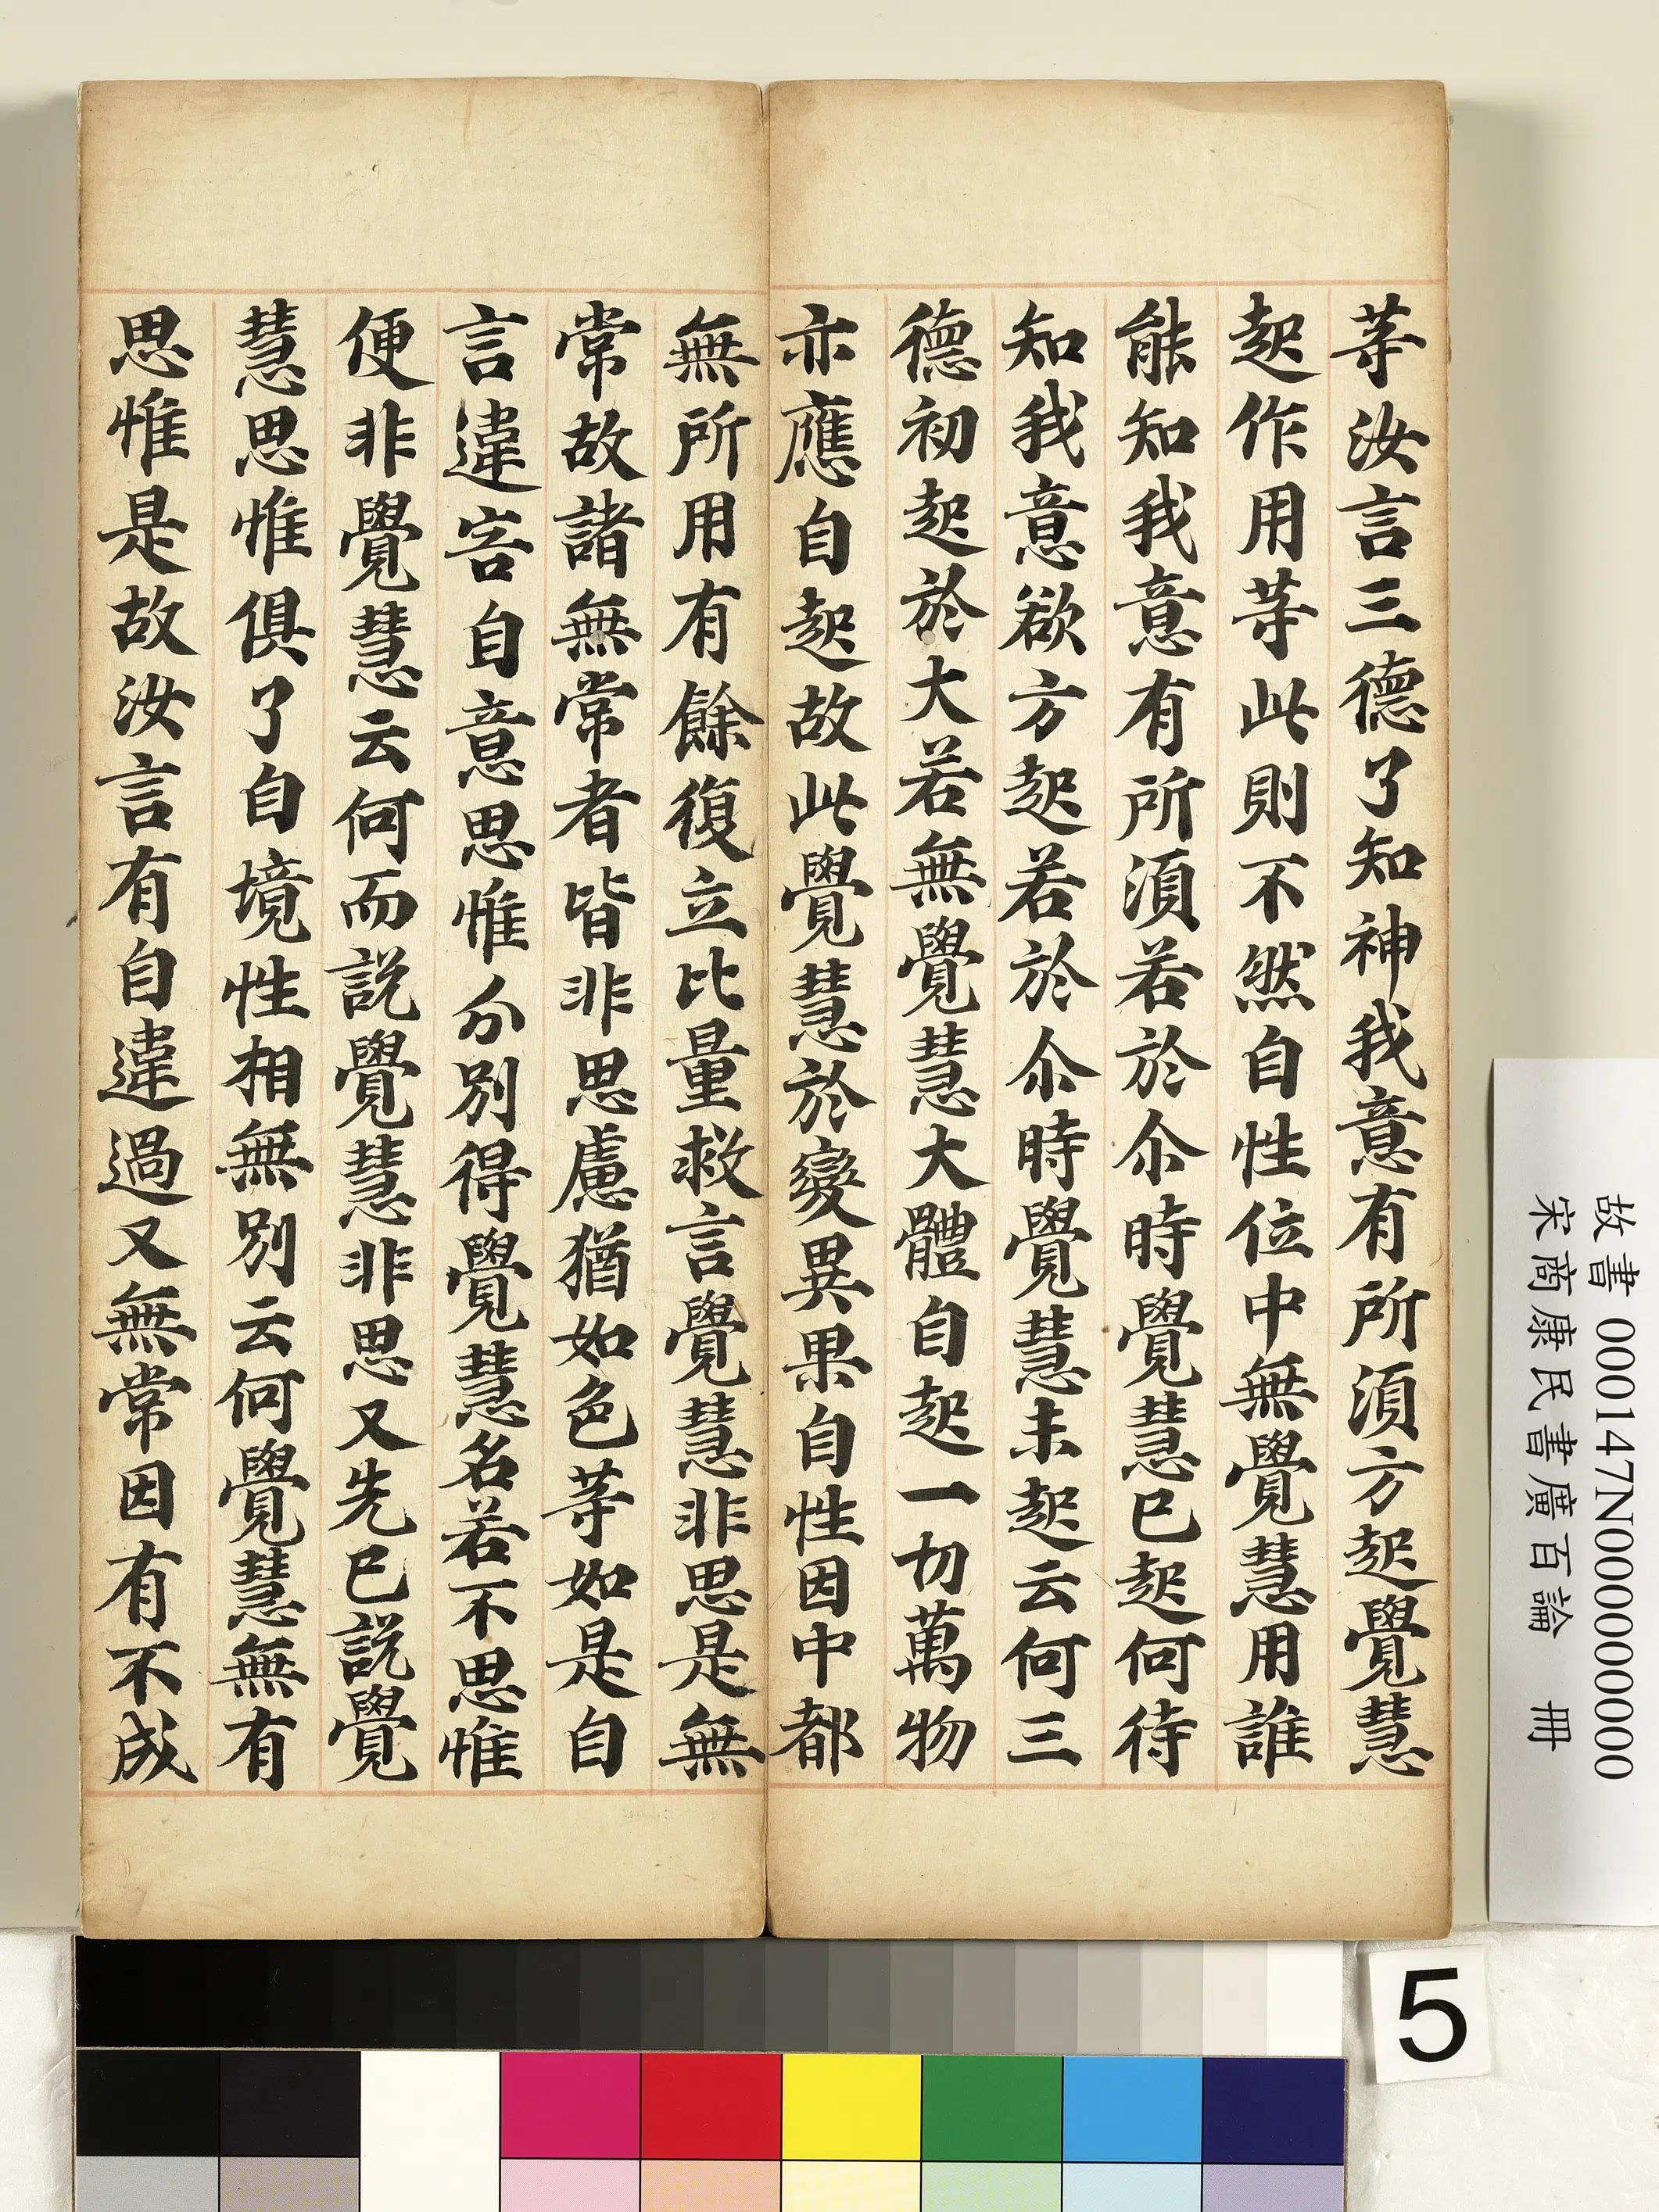 等汝言三德了知神我意有所須方起覺慧
起作用等此則不然自性位中無覺慧用誰
能知我意有所須若於尒時覺慧已起何待
知我意欲方起若於尒時覺慧未起云何三
德初起於大若無覺慧大體自起一切萬物
亦應自起故此覺慧於變異果自性因中都
無所用有餘復立比量救言覺慧非思是無
常故諸無常者皆非思慮猶如色等如是自
言違害自意思惟分別得覺慧名若不思惟
便非覺慧云何而説覺慧非思又先已説覺
慧思惟俱了自境性相無別云何覺慧無有
思惟是故汝言有自違過又無常因有不成
故書 000147N000000000
宋商康民書廣百論 冊
5